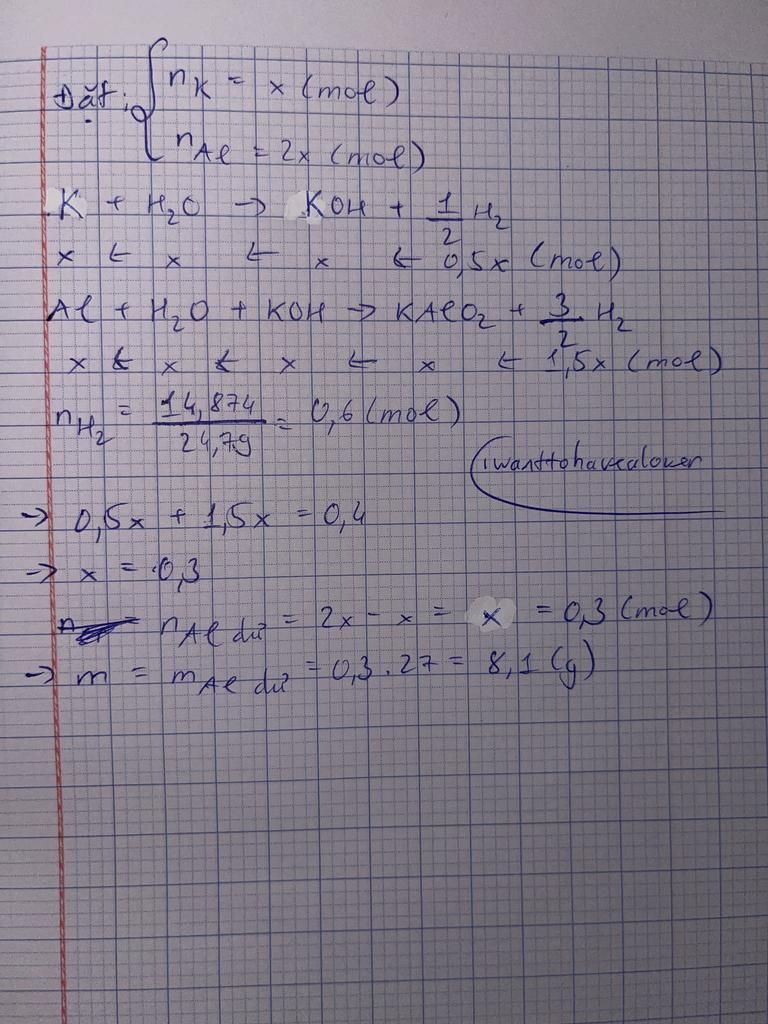 Đặt: { nK = x (mol)
nAl = 2x (mol)
K + H₂O → KOH + 1/2 H₂
x ← x ← x ← 0,5x (mol)
Al + H₂O + KOH → KAlO₂ + 3/2 H₂
x ← x ← x ← x ← 1,5x (mol)
nH₂ = 14,874/24,79 = 0,6 (mol)
iwanttohavealover
→ 0,5x + 1,5x = 0,4
→ x = 0,3
nAl dư = 2x - x = x = 0,3 (mol)
→ m = mAl dư = 0,3 . 27 = 8,1 (g)